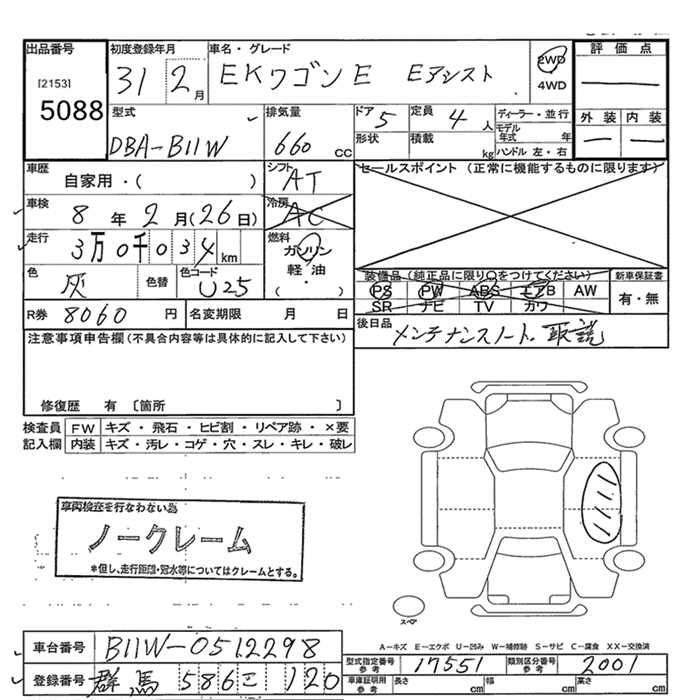 出品番号 初度登録年月 車名・グレード 評価点
[2153] 5088 31 2月 EKワゴンE Eアシスト 2WD 4WD
外装 内装
型式 排気量 ドア 5 定員 4人 ディーラー・並行
DBA-B11W 660 cc 形状 積載 kg モデル年式 年 ハンドル 左・右
車歴 自家用・( ) シフト AT セールスポイント (正常に機能するものに限ります)
車検 8年 2月 (26日) 冷房 AC
走行 3万0千034km 燃料 ガソリン 軽油 ・ ( )
色 灰 色替 色コード U25
装備品 (純正品に限り〇をつけてください) 新車保証書
PS PW ABS エアB AW 有・無
SR ナビ TV カワ
R券 8060円 名変期限 月 日
後日品 メンテナンスノート、取説
注意事項申告欄(不具合内容等は具体的に記入して下さい)
修復歴 有 〔箇所 〕
検査員 FW キズ・飛石・ヒビ割・リペア跡・×要
記入欄 内装 キズ・汚レ・コゲ・穴・スレ・キレ・破レ
車両検査を行なわない為
ノークレーム
*但し、走行距離・冠水等についてはクレームとする。
スペア
A-キズ E-エクボ U-凹み W-補修跡 S-サビ C-腐食 XX-交換済
車台番号 B11W-0512298
型式指定番号 参考 17551 類別区分番号 参考 2001
登録番号 群馬 586 こ 120
車庫証明用 参考 長さ cm 幅 cm 高さ cm